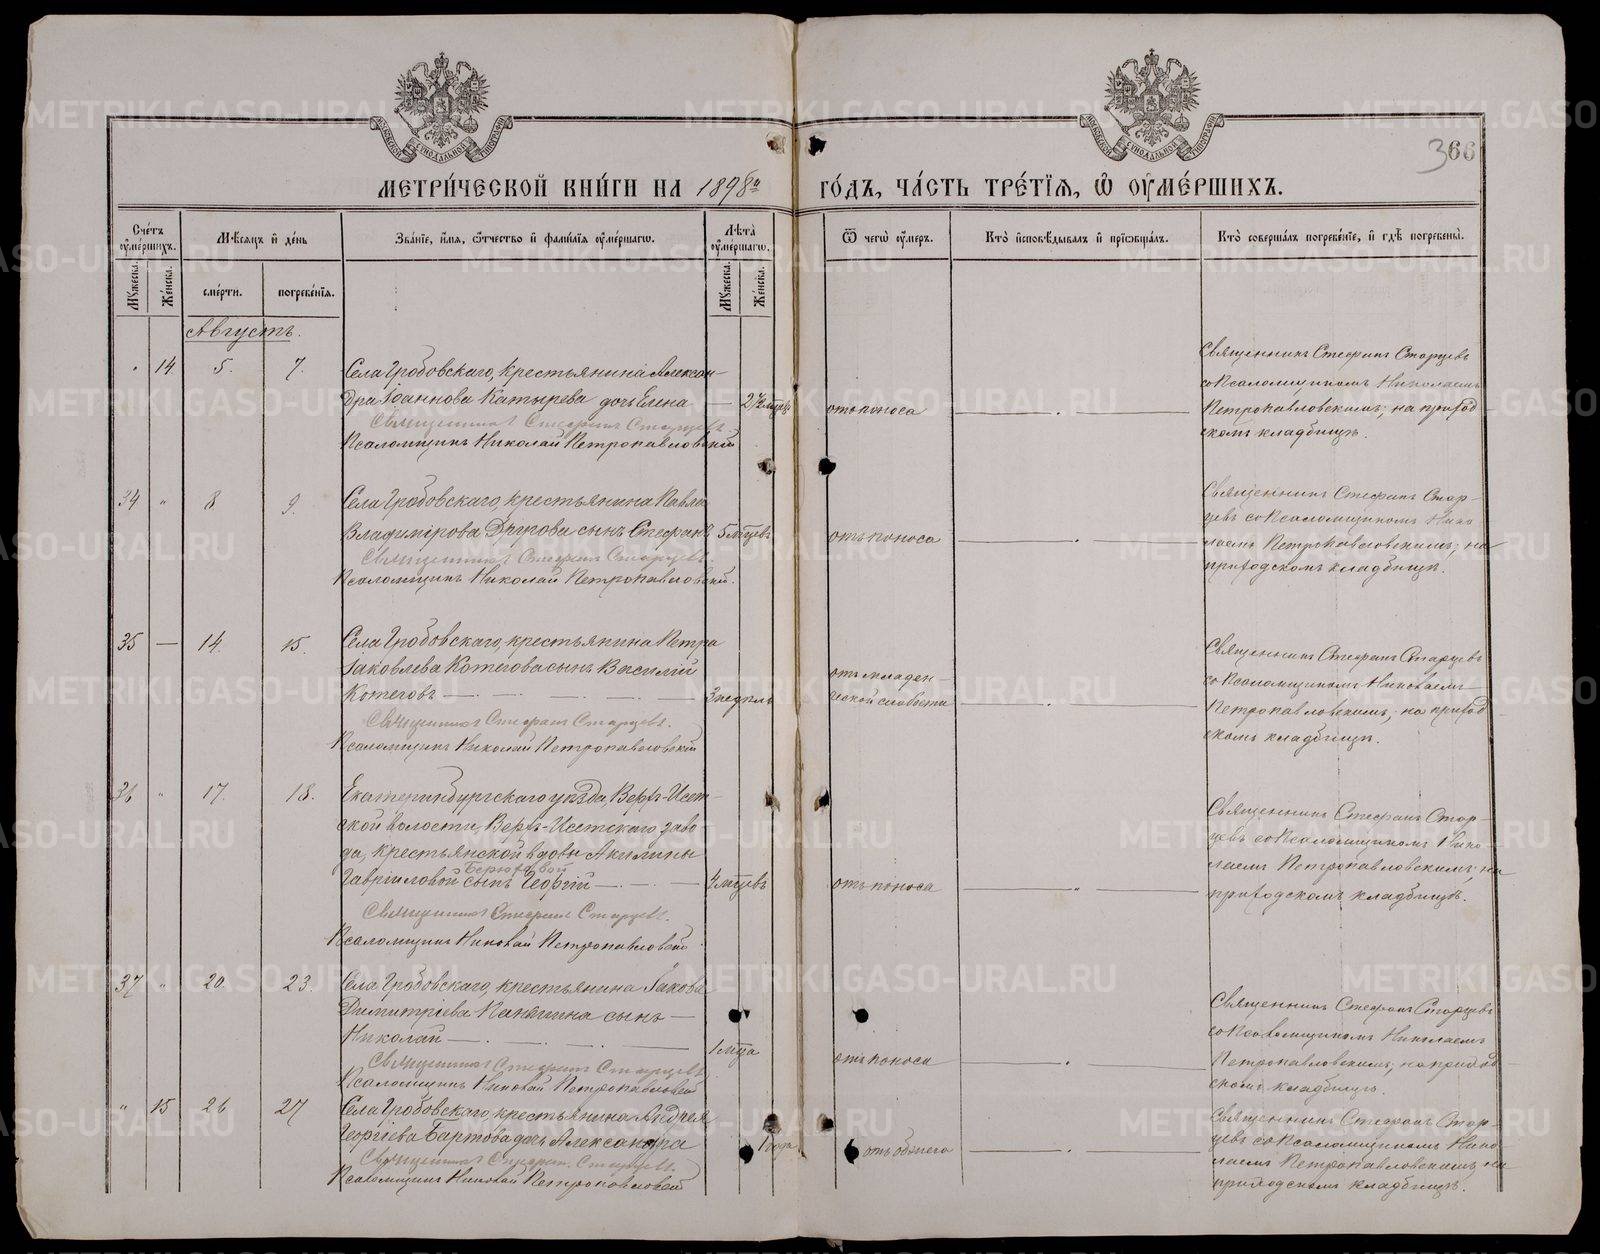 366
МЕТРИ́ЧЕСКОЙ КНИ́ГИ НА 1898й ГО́ДЪ, ЧА́СТЬ ТРЕ́ТЇЯ, Ѡ҆ ОУ҆МЕ́РШИХЪ.
Сче́тъ оу҆ме́ршихъ.
Мꙋ́жеска.
Же́нска.
Мѣ́сяцъ и҆ де́нь
сме́рти.
погребе́нїя.
Зва́нїе, и҆́мя, ѻ҆́тчество и҆ фами́лїя оу҆ме́ршагѡ.
Лѣ́та оу҆ме́ршагѡ.
Мꙋ́жеска.
Же́нска.
Ѿ чегѡ̀ оу҆́меръ.
Кто̀ и҆сповѣ́дывалъ и҆ прїѡбща́лъ.
Кто̀ соверша́лъ погребе́нїе, и҆ гдѣ̀ погребены̀.
Августъ.
" 14 5. 7.
Села Гробовскаго, крестьянина Алексан-
дра Іоаннова Катырева дочь Елена — 2½ мѣсяц.
Священникъ Стефанъ Старцевъ.
Псаломщикъ Николай Петропавловскій
отъ поноса
Священникъ Стефанъ Старцевъ
со Псаломщикомъ Николаемъ
Петропавловскимъ; на приход
скомъ кладбищѣ.
34 " 8 9.
Села Гробовскаго, крестьянина Павла
Владимірова Другова сынъ Стефанъ 5 мѣцевъ
Священникъ Стефанъ Старцевъ.
Псаломщикъ Николай Петропавловскій.
отъ поноса
Священникъ Стефанъ Стар-
цевъ со Псаломщикомъ Нико
лаемъ Петропавловскимъ; на
приходскомъ кладбищѣ.
35 — 14. 15.
Села Гробовскаго, крестьянина Петра
Іаковлева Котегова сынъ Василій
Котеговъ — 3 недѣль
Священникъ Стефанъ Старцевъ.
Псаломщикъ Николай Петропавловскій
отъ младен-
ческой слабости
Священникъ Стефанъ Старцевъ
со Псаломщикомъ Николаемъ
Петропавловскимъ; на приход
скомъ кладбищѣ.
36 " 17. 18.
Екатеринбургскаго уѣзда, Верхъ-Исет-
ской волости, Верхъ-Исетскаго заво
да, крестьянской вдовы Акилины
Гавріиловой сынъ Георгій — 4 мѣцевъ
Священникъ Стефанъ Старцевъ.
Псаломщикъ Николай Петропавловскій
отъ поноса
Священникъ Стефанъ Стар-
цевъ со Псаломщикомъ Нико-
лаемъ Петропавловскимъ; на
приходскомъ кладбищѣ.
37 " 20. 23.
Села Гробовскаго, крестьянина Іакова
Димитріева сынъ —
Николай — 1 мѣца
Священникъ Стефанъ Старцевъ
Псаломщикъ Николай Петропавловскій
отъ поноса
Священникъ Стефанъ Старцевъ
со Псаломщикомъ Николаемъ
Петропавловскимъ; на приход-
скомъ кладбищѣ.
" 15 26 27
Села Гробовскаго, крестьянина Андрея
Георгіева дочь Александра 1 года
Священникъ Стефанъ Старцевъ.
Псаломщикъ Николай Петропавловскій
Священникъ Стефанъ Стар-
цевъ со Псаломщикомъ Нико
лаемъ Петропавловскимъ; на
приходскомъ кладбищѣ.
METRIKI.GASO-URAL.RU